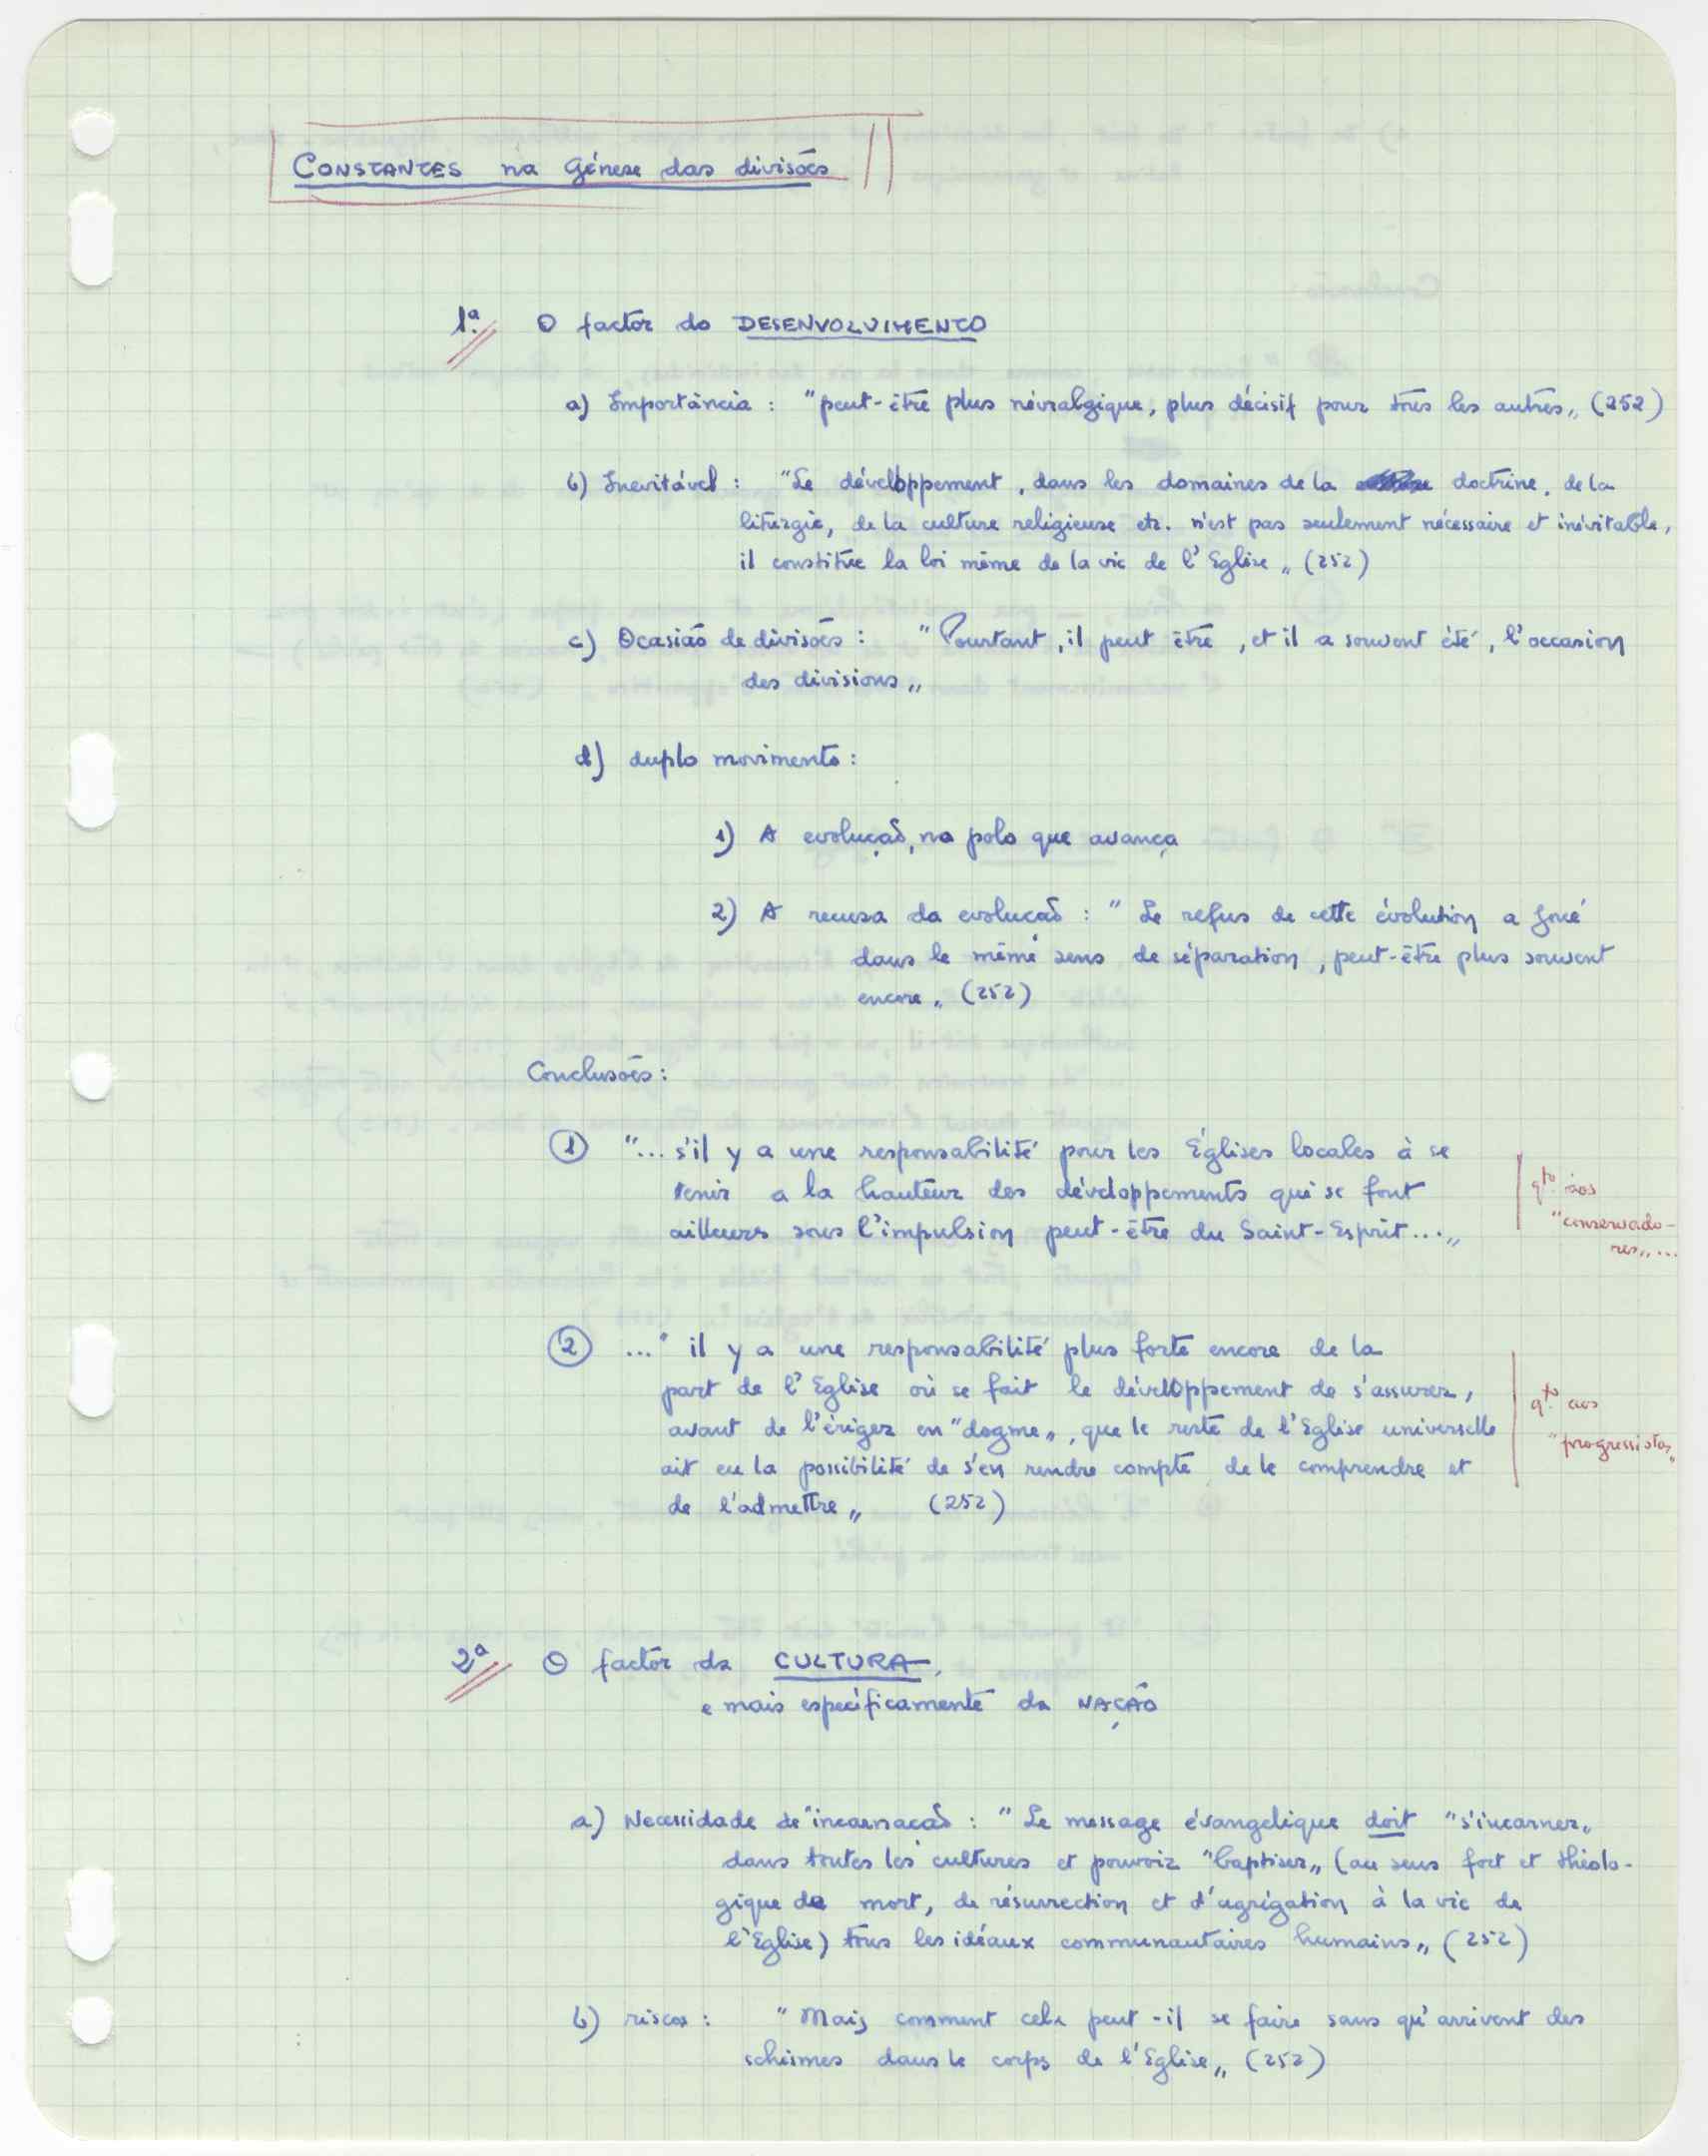 CONSTANTES na Génese das divisões
1ª. O factor do DESENVOLVIMENTO
a) Importância : "peut-être plus névralgique, plus décisif pour tous les autres„ (252)
b) Inevitável : "Le développement, dans les domaines de la doctrine, de la
liturgie, de la culture religieuse etc. n'est pas seulement nécessaire et inévitable,
il constitue la loi même de la vie de l'Eglise„ (252)
c) Ocasião de divisões : "Pourtant, il peut être, et il a souvent été, l'occasion
des divisions„
d) duplo movimento :
1) A evolução, no polo que avança
2) A recusa da evolução : "Le refus de cette évolution a joué
dans le même sens de séparation, peut-être plus souvent
encore„ (252)
Conclusões :
1 "... s'il y a une responsabilité pour les Églises locales à se
tenir a la hauteur des développements qui se font
ailleurs sous l'impulsion peut-être du Saint-Esprit...„
qto. aos
"conservado-
res„...
2 ..." il y a une responsabilité plus forte encore de la
part de l'Eglise où se fait le développement de s'assurer,
avant de l'ériger en "dogme„, que le reste de l'Eglise universelle
ait eu la possibilité de s'en rendre compte de le comprendre et
de l'admettre„ (252)
qto. aos
"progressistas„
2ª O factor da CULTURA,
e mais especificamente da NAÇÃO
a) Necessidade de "incarnação : "Le message évangelique doit "s'incarner„
dans toutes les cultures et pouvoir "baptiser„ (au sens fort et théolo-
gique de mort, de résurrection et d'agrégation à la vie de
l'Eglise) tous les idéaux communautaires humains„ (252)
b) riscos : "Mais comment cela peut-il se faire sans qu'arrivent des
schismes dans le corps de l'Eglise„ (252)